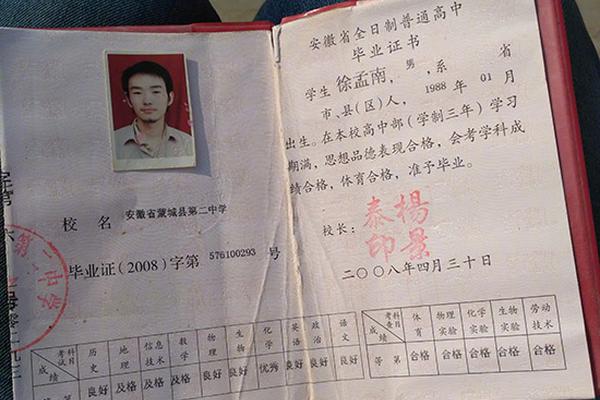 校名 安徽省蒙城县第二中学
毕业证(2008)字第 576100293 号
第二中学
考试科目 成绩 历史 地理 信息技术 数学 物理 生物 化学 英语 政治 语文
第 良好 及格 及格 及格 良好 良好 优秀 良好 良好 良好
安徽省全日制普通高中
毕业证书
学生 徐孟南，男，系 省
市、县(区)人，1988 年 01 月
出生。在本校高中部(学制三年)学习
期满，思想品德表现合格，会考学科成
绩合格，体育合格，准予毕业。
校长： 楊景泰印
二〇〇八年四月三十日
考查科目 成绩 体育 物理实验 化学实验 生物实验 劳动技术
等第 合格 合格 合格 合格 合格